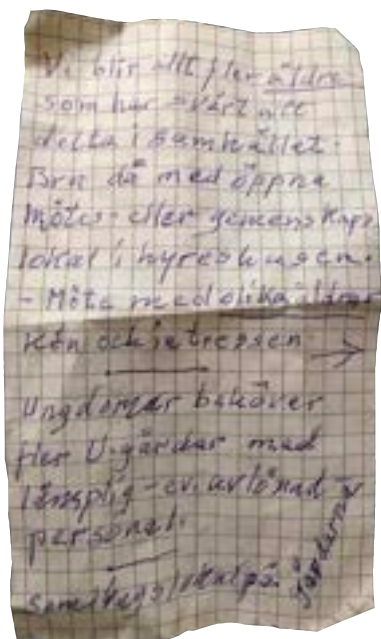 Vi blir allt fler äldre
som har svårt att
delta i samhället.
Bra då med öppna
Mötes- eller gemenskaps
lokal i hyreshusen.
- Möte med olika åldrar
Kön och intressen →
Ungdomar behöver
fler U.gårdar med
lämplig - ev. avlönad
personal.
på gårdarna